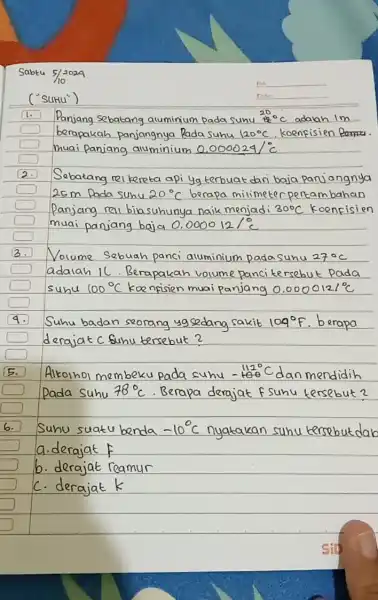 Sabtu 5/10 2024
("SUHU")
1. Panjang sebatang aluminium pada suhu 20 °C adalah 1m
berapakah panjangnya Pada suhu 120°C, koenfisien
muai Panjang aluminium 0.000024/°C
2. Sebatang rel kereta api yg terbuat dari baja Panjangnya
25m Pada suhu 20°C berapa milimeter pertambahan
Panjang rel bia suhunya naik menjadi 30°C Koenfisien
muai panjang baja 0,0000 12/°C
3. Volume Sebuah Panci aluminium pada suhu 27°C
adalah 1L. Berapakah volume panci tersebut Pada
suhu 100°C Koenfisien muai panjang 0,000012/°C
4. Suhu badan seorang yg sedang sakit 104°F. berapa
derajat C Suhu tersebut?
5. Alkohol membeku pada suhu -112°C dan mendidih
Pada suhu 78°C. Berapa derajat F suhu tersebut?
6. Suhu suatu benda -10°C nyatakan suhu tersebut dal
a. derajat F
b. derajat reamur
c. derajat K
SiD